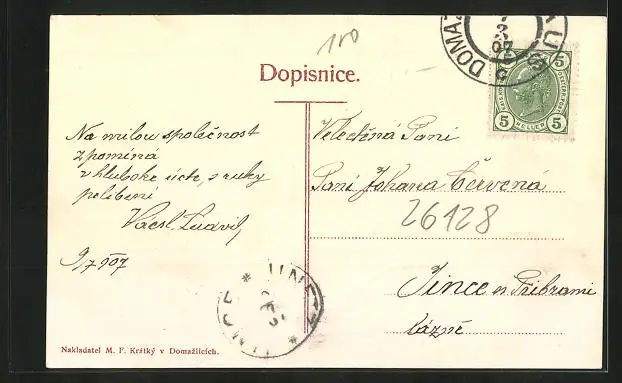 100
Dopisnice.
DOMAŽ
7
3
07
5 5
HELLER
5 5
Na milou společnost
zpomíná
v hluboké úctě, s ruky
políbení
Václ. Ludvík
9/7 907
Velectěná Paní
Paní Johana Červená
26128
Jince n Příbrami
lázně
JINCE
Nakladatel M. F. Krátký v Domažlicích.